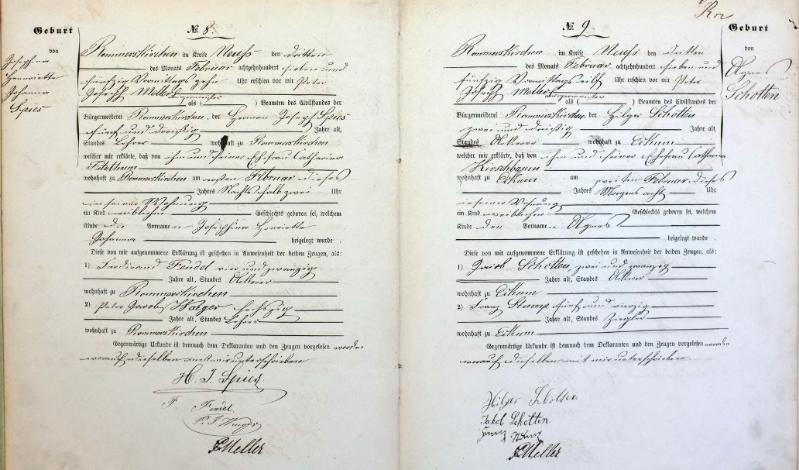 Geburt
von
Josephina
Henriette
Johanna
Spies
№ 8.
Rommerskirchen im Kreise Neuss den dritten
des Monats Februar achtzehnhundert sieben und
fünfzig Vormittags zehn Uhr erschien vor mir Peter
Joseph Meller Bürgermeister
als ( ) Beamten des Civilstandes der
Bürgermeisterei Rommerskirchen, der Herman Joseph Spies
fünf und dreißig Jahre alt,
Standes Lehrer wohnhaft zu Rommerskirchen
welcher mir erklärte, daß von ihm und seiner Ehefrau Catharina
wohnhaft zu Rommerskirchen am ersten Februar dieses
Jahres Nachts halb zwei Uhr
in seiner Wohnung
ein Kind weiblichen Geschlechts geboren sei, welchem
Kinde die Vornamen Josephina Henriette
Johanna beigelegt wurde.
Diese von mir aufgenommene Erklärung ist geschehen in Anwesenheit der beiden Zeugen, als:
1) Ferdinand Feudel vier und zwanzig
Jahre alt, Standes Ackerer
wohnhaft zu Rommerskirchen
2) Peter Jacob sechszig
Jahre alt, Standes Lehrer
wohnhaft zu Rommerskirchen
Gegenwärtige Urkunde ist demnach dem Deklaranten und den Zeugen vorgelesen worden
worauf dieselben mit mir unterschrieben
H. J. Spies
F. Feudel
P. J.
Meller
Geburt
von
Agnes
Schotten
№ 9.
Rommerskirchen im Kreise Neuss den dritten
des Monats Februar achtzehnhundert sieben und
fünfzig Vormittags elf Uhr erschien vor mir Peter
Joseph Meller Bürgermeister
als ( ) Beamten des Civilstandes der
Bürgermeisterei Rommerskirchen, der Hilger Schotten
zwei und dreißig Jahre alt,
Standes Ackerer wohnhaft zu Eikum
welcher mir erklärte, daß von ihm und seiner Ehefrau Catharina
Kirschbaum
wohnhaft zu Eikum am zweiten Februar dieses
Jahres Morgens acht Uhr
in seiner Wohnung
ein Kind weiblichen Geschlechts geboren sei, welchem
Kinde den Vornamen Agnes
beigelegt wurde.
Diese von mir aufgenommene Erklärung ist geschehen in Anwesenheit der beiden Zeugen, als:
1) Jacob Schotten, zwei und zwanzig
Jahre alt, Standes Ackerer
wohnhaft zu Eikum
2) Franz Stump fünf und vierzig
Jahre alt, Standes Ziegler
wohnhaft zu Eikum
Gegenwärtige Urkunde ist demnach dem Deklaranten und den Zeugen vorgelesen worden
worauf dieselben mit mir unterschrieben
Hilger Schotten
Jakob Schotten
Meller